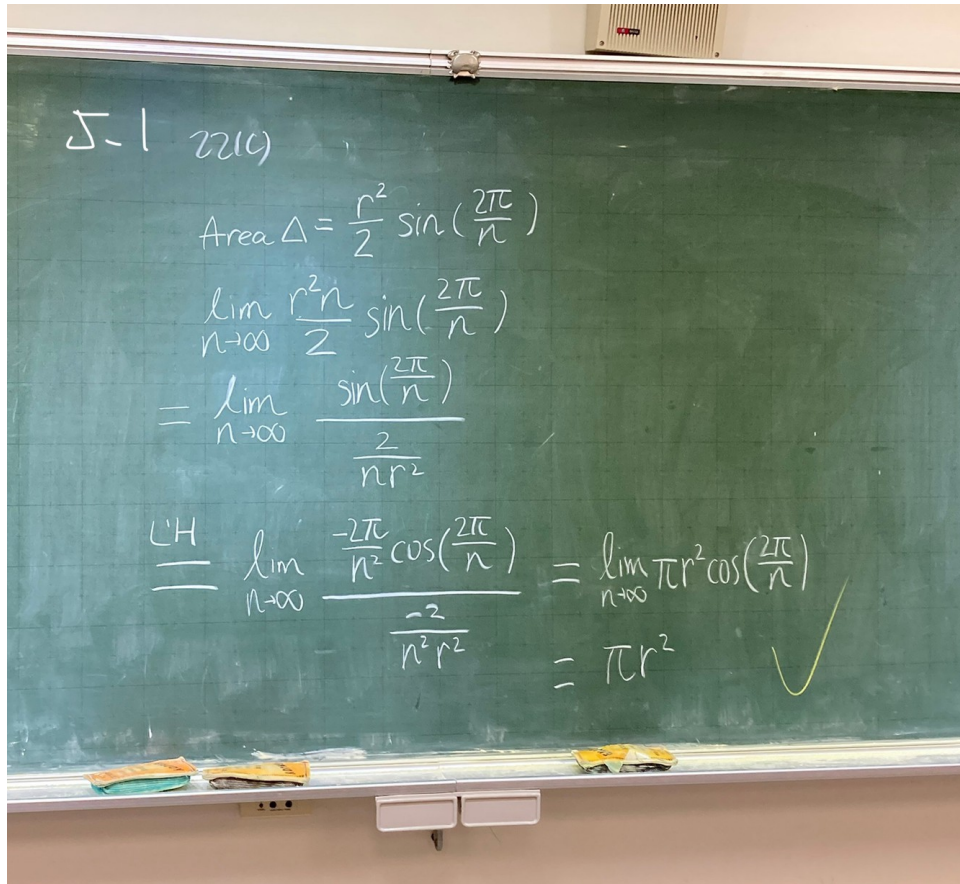 5.1 22(c)
Area Δ = r²/2 sin(2π/n)
lim n→∞ r²n/2 sin(2π/n)
= lim n→∞ sin(2π/n) / (2/(nr²))
L'H = lim n→∞ (-2π/n² cos(2π/n)) / (-2/(n²r²)) = lim n→∞ πr² cos(2π/n)
= πr²